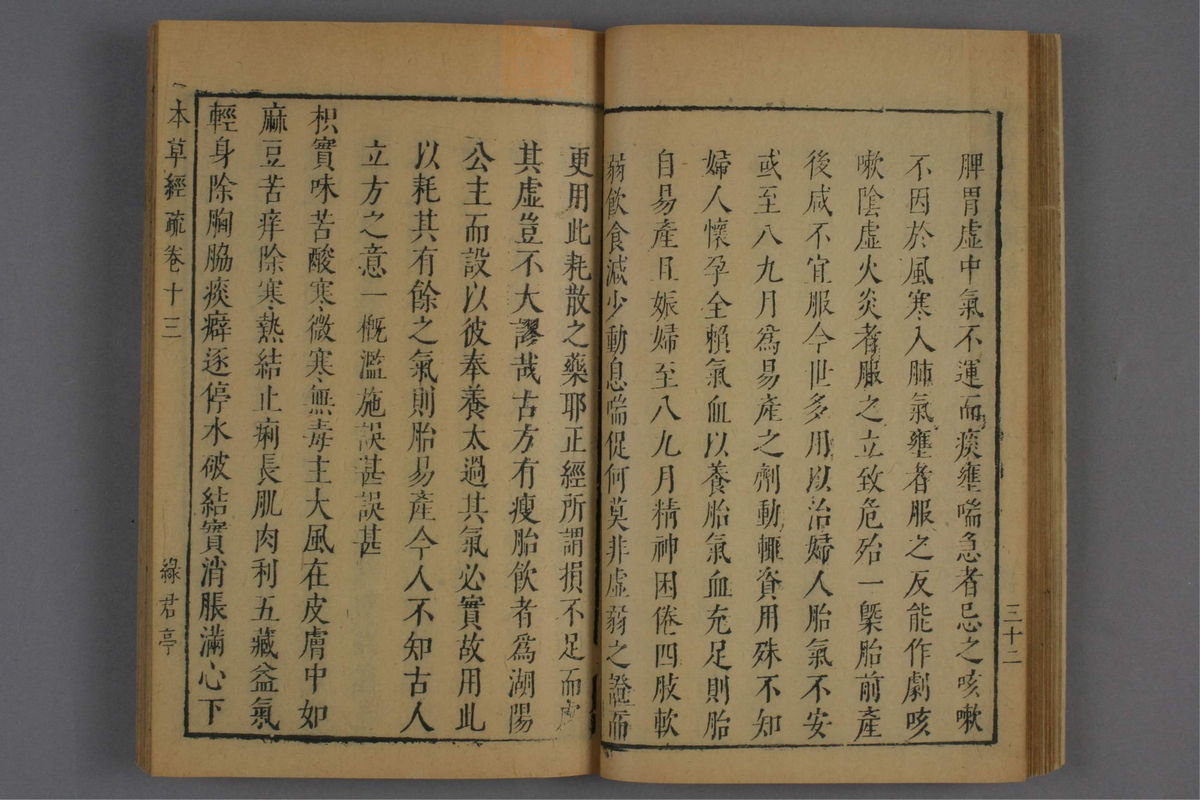 三十二
脾胃虛中氣不運而痰壅喘急者忌之咳嗽
不因於風寒入肺氣壅者服之反能作劇咳
嗽陰虛火炎者服之立致危殆一槩胎前產
後咸不宜服今世多用以治婦人胎氣不安
或至八九月爲易產之劑動輒資用殊不知
婦人懷孕全賴氣血以養胎氣血充足則胎
自易產且娠婦至八九月精神困倦四肢軟
弱飲食減少動息喘促何莫非虛弱之證而
更用此耗散之藥耶正經所謂損不足而虛
其虛豈不大謬哉古方有瘦胎飲者爲湖陽
公主而設以彼奉養太過其氣必實故用此
以耗其有餘之氣則胎易產今人不知古人
立方之意一概濫施誤甚誤甚
枳實味苦酸寒微寒無毒主大風在皮膚中如
麻豆苦痒除寒熱結止痢長肌肉利五藏益氣
輕身除胸脇痰癖逐停水破結實消脹滿心下
本草經疏卷十三
綠君亭